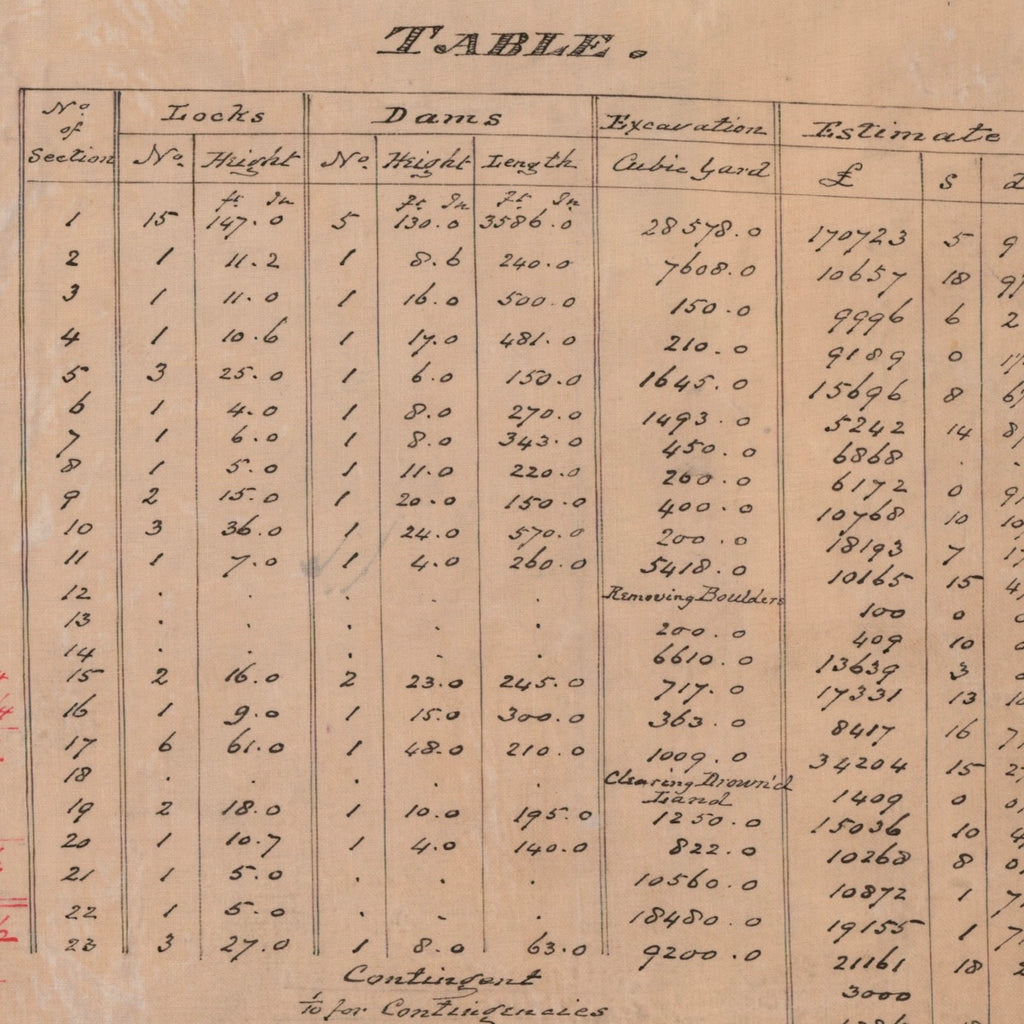 TABLE.
No. of Section Locks Dams Excavation Estimate
No. Height No. Height Length Cubic Yard £ s d
ft In Ft In Ft In
1 15 147.0 5 130.0 3586.0 28578.0 170723 5 9
2 1 11.2 1 8.6 240.0 7608.0 10657 18
3 1 11.0 1 16.0 500.0 150.0 9996 6 2
4 1 10.6 1 17.0 481.0 210.0 9189 0
5 3 25.0 1 6.0 150.0 1645.0 15696 8
6 1 4.0 1 8.0 270.0 1493.0 5242 14
7 1 6.0 1 8.0 343.0 450.0 6868 . .
8 1 5.0 1 11.0 220.0 260.0 6172 0
9 2 15.0 1 20.0 150.0 400.0 10768 10
10 3 36.0 1 24.0 570.0 200.0 18193 7
11 1 7.0 1 4.0 260.0 5418.0 10165 15
12 . . . . . Removing Boulders 100 0
13 . . . . . 200.0 409 10
14 . . . . . 6610.0 13639 3
15 2 16.0 2 23.0 245.0 717.0 17331 13
16 1 9.0 1 15.0 300.0 363.0 8417 16
17 6 61.0 1 48.0 210.0 1009.0 34204 15
18 . . . . . Clearing Drown'd Land 1409 0
19 2 18.0 1 10.0 195.0 1250.0 15036 10
20 1 10.7 1 4.0 140.0 822.0 10268 8
21 1 5.0 . . . 10560.0 10872 1
22 1 5.0 . . . 18480.0 19155 1
23 3 27.0 1 8.0 63.0 9200.0 21161 18
Contingent 3000
1/10 for Contingencies